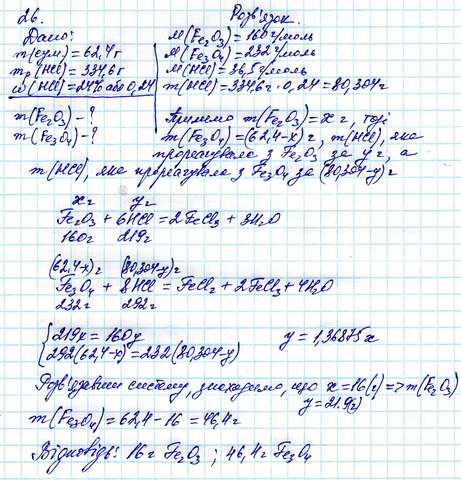 26.
Розв'язок.
Дано:
m(сум) = 62,4 г
mр(HCl) = 334,6 г
ω(HCl) = 24% або 0,24
m(Fe₂O₃) - ?
m(Fe₃O₄) - ?
M(Fe₂O₃) = 160 г/моль
M(Fe₃O₄) = 232 г/моль
M(HCl) = 36,5 г/моль
m(HCl) = 334,6 г · 0,24 = 80,304 г
Приймемо m(Fe₂O₃) = x г, тоді
m(Fe₃O₄) = (62,4-x) г, m(HCl), яка
прореагувала з Fe₂O₃ за y г, а
m(HCl), яка прореагувала з Fe₃O₄ за (80,304-y) г
x г y г
Fe₂O₃ + 6HCl = 2FeCl₃ + 3H₂O
160 г 219 г
(62,4-x) г (80,304-y) г
Fe₃O₄ + 8HCl = FeCl₂ + 2FeCl₃ + 4H₂O
232 г 292 г
{219x = 160y y = 1,36875x
292(62,4-x) = 232(80,304-y)
Розв'язавши систему, знаходимо, що x = 16 (г) => m(Fe₂O₃)
y = 21.9(г)
m(Fe₃O₄) = 62,4 - 16 = 46,4 г
Відповідь: 16 г Fe₂O₃ ; 46,4 г Fe₃O₄